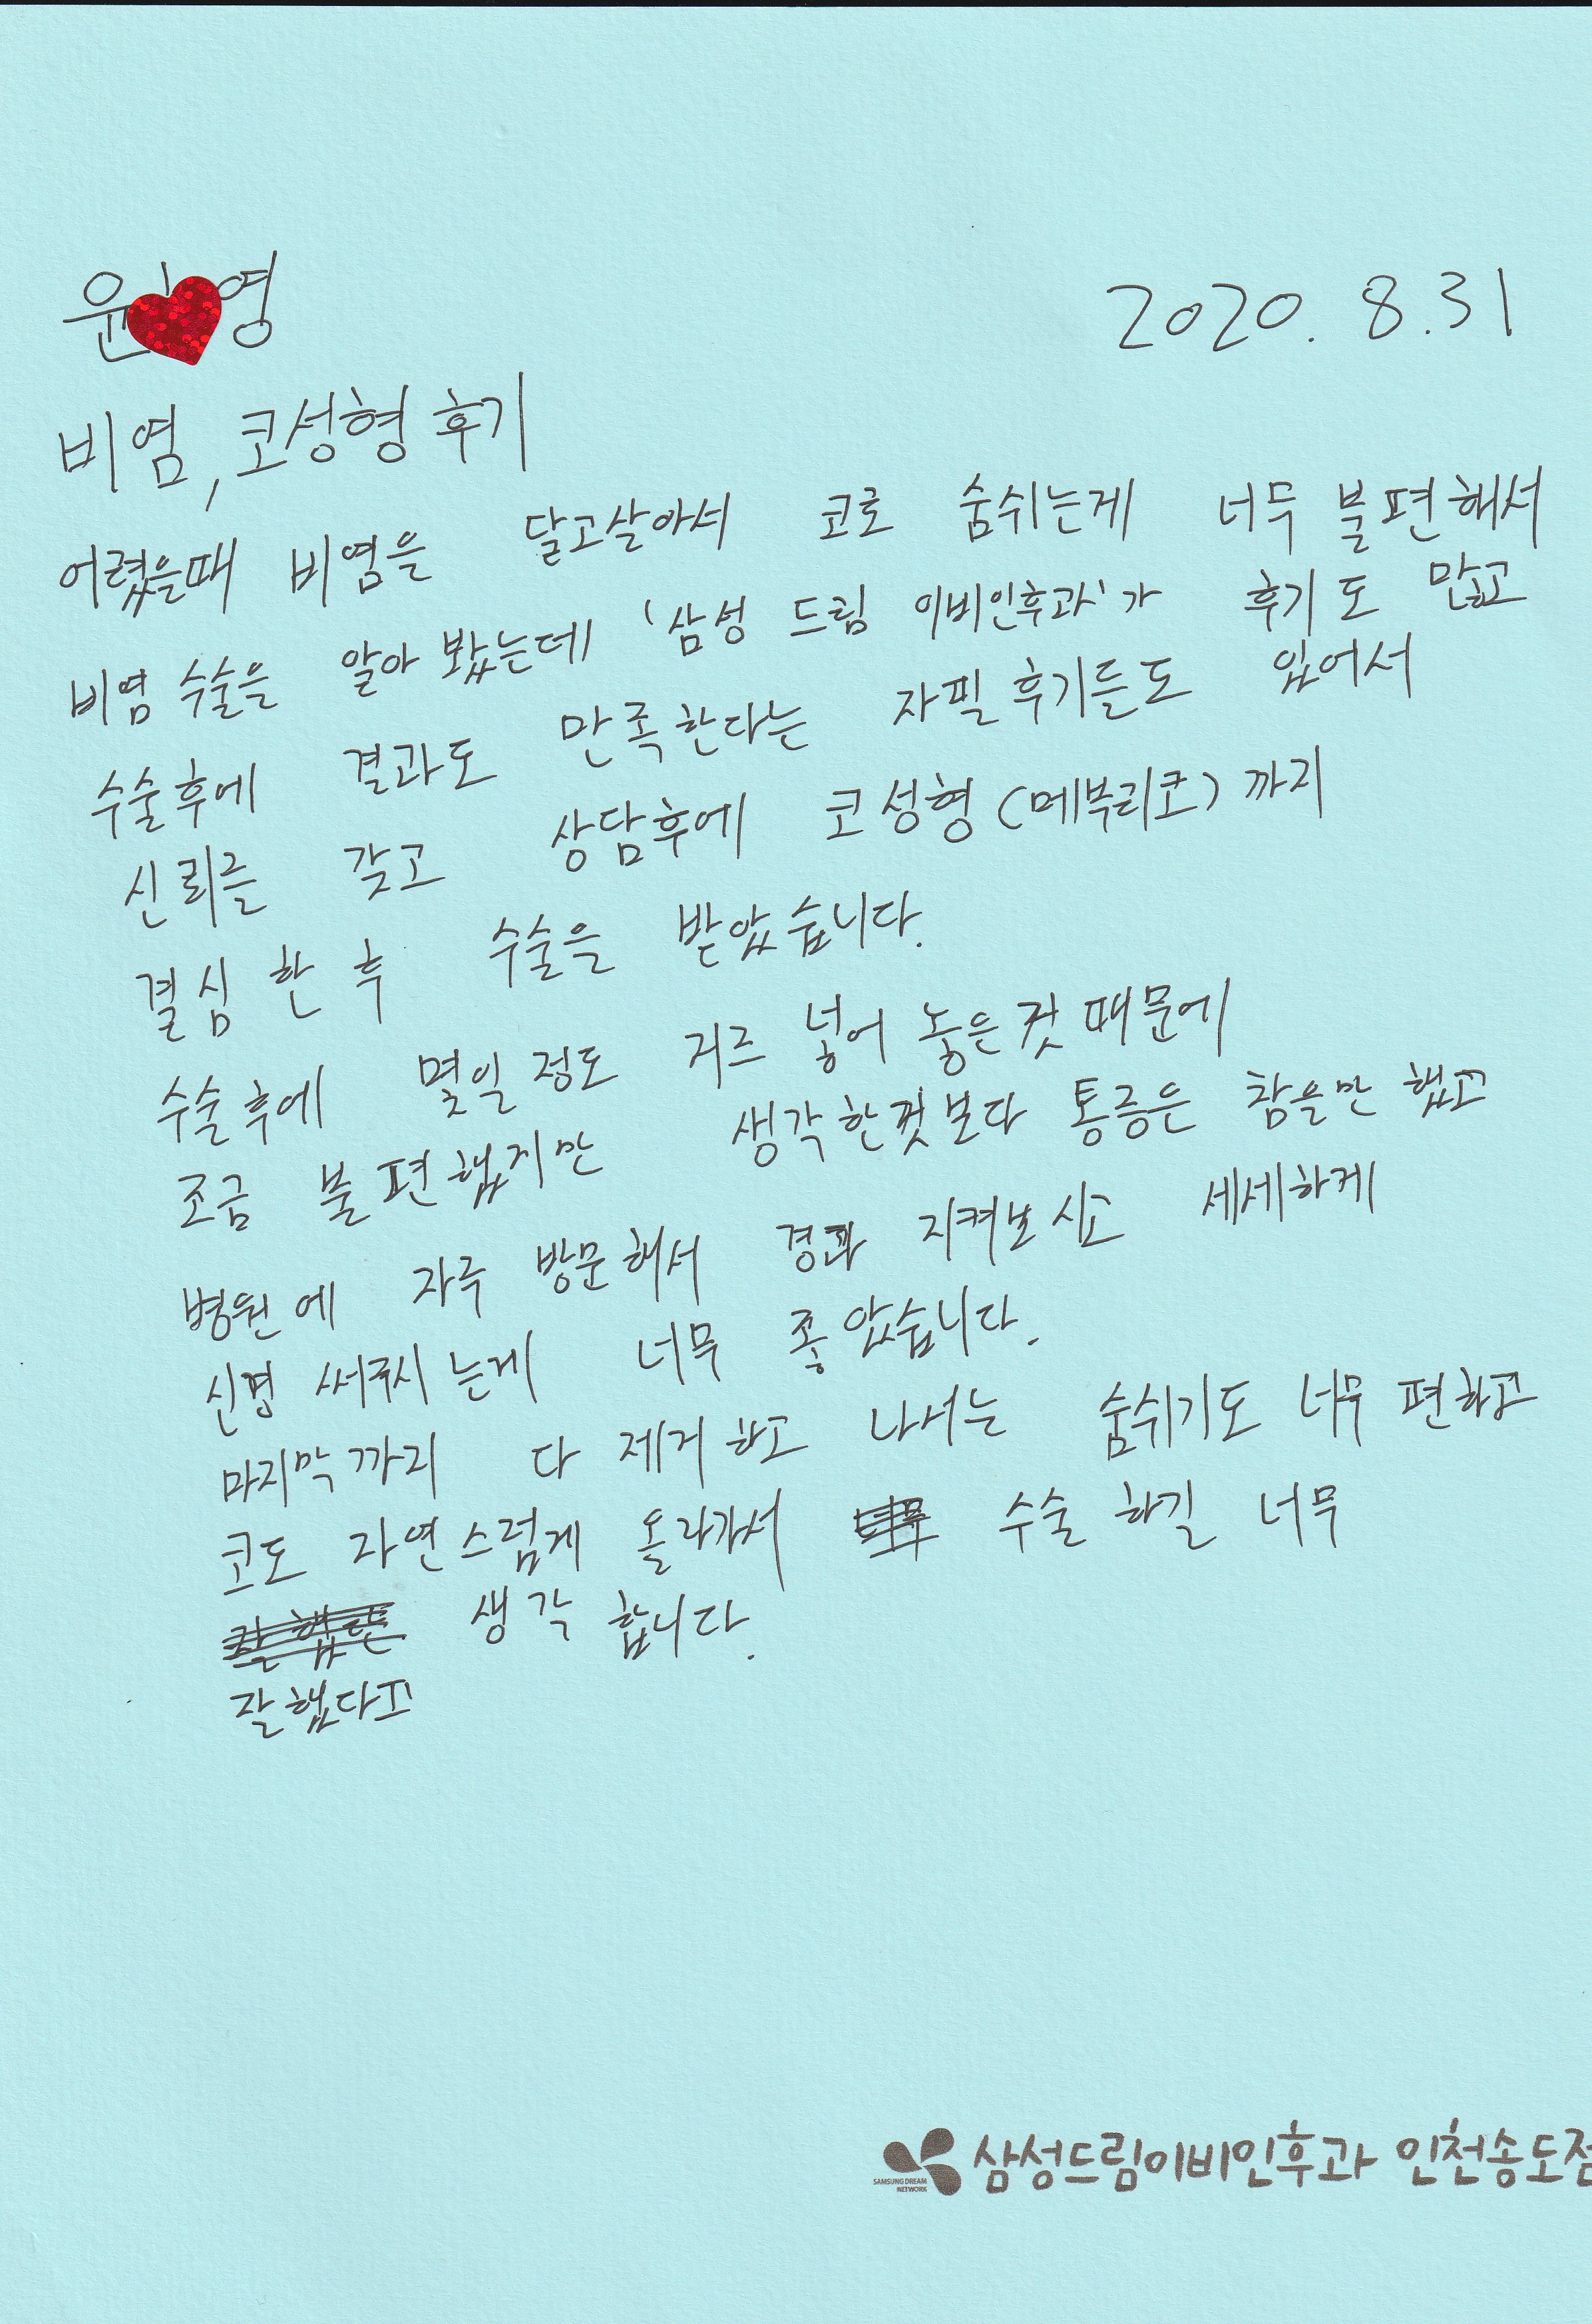 윤 영
2020. 8. 31
비염, 코성형 후기
어렸을때 비염을 달고살아서 코로 숨쉬는게 너무 불편해서
비염 수술을 알아 봤는데 '삼성 드림 이비인후과'가 후기도 많고
수술후에 결과도 만족한다는 자필후기들도 있어서
신뢰를 갖고 상담후에 코성형(메부리코)까지
결심 한 후 수술을 받았습니다.
수술후에 몇일 정도 거즈 넣어 놓은것 때문에
조금 불편했지만 생각한것보다 통증은 참을만 했고
병원에 자주 방문해서 경과 지켜보시고 세세하게
신경 써주시는게 너무 좋았습니다.
마지막까지 다 제거하고 나서는 숨쉬기도 너무 편하고
코도 자연스럽게 올라가서 수술 하길 너무
생각 합니다.
잘했다고
SAMSUNG DREAM
NETWORK
삼성드림이비인후과 인천송도점